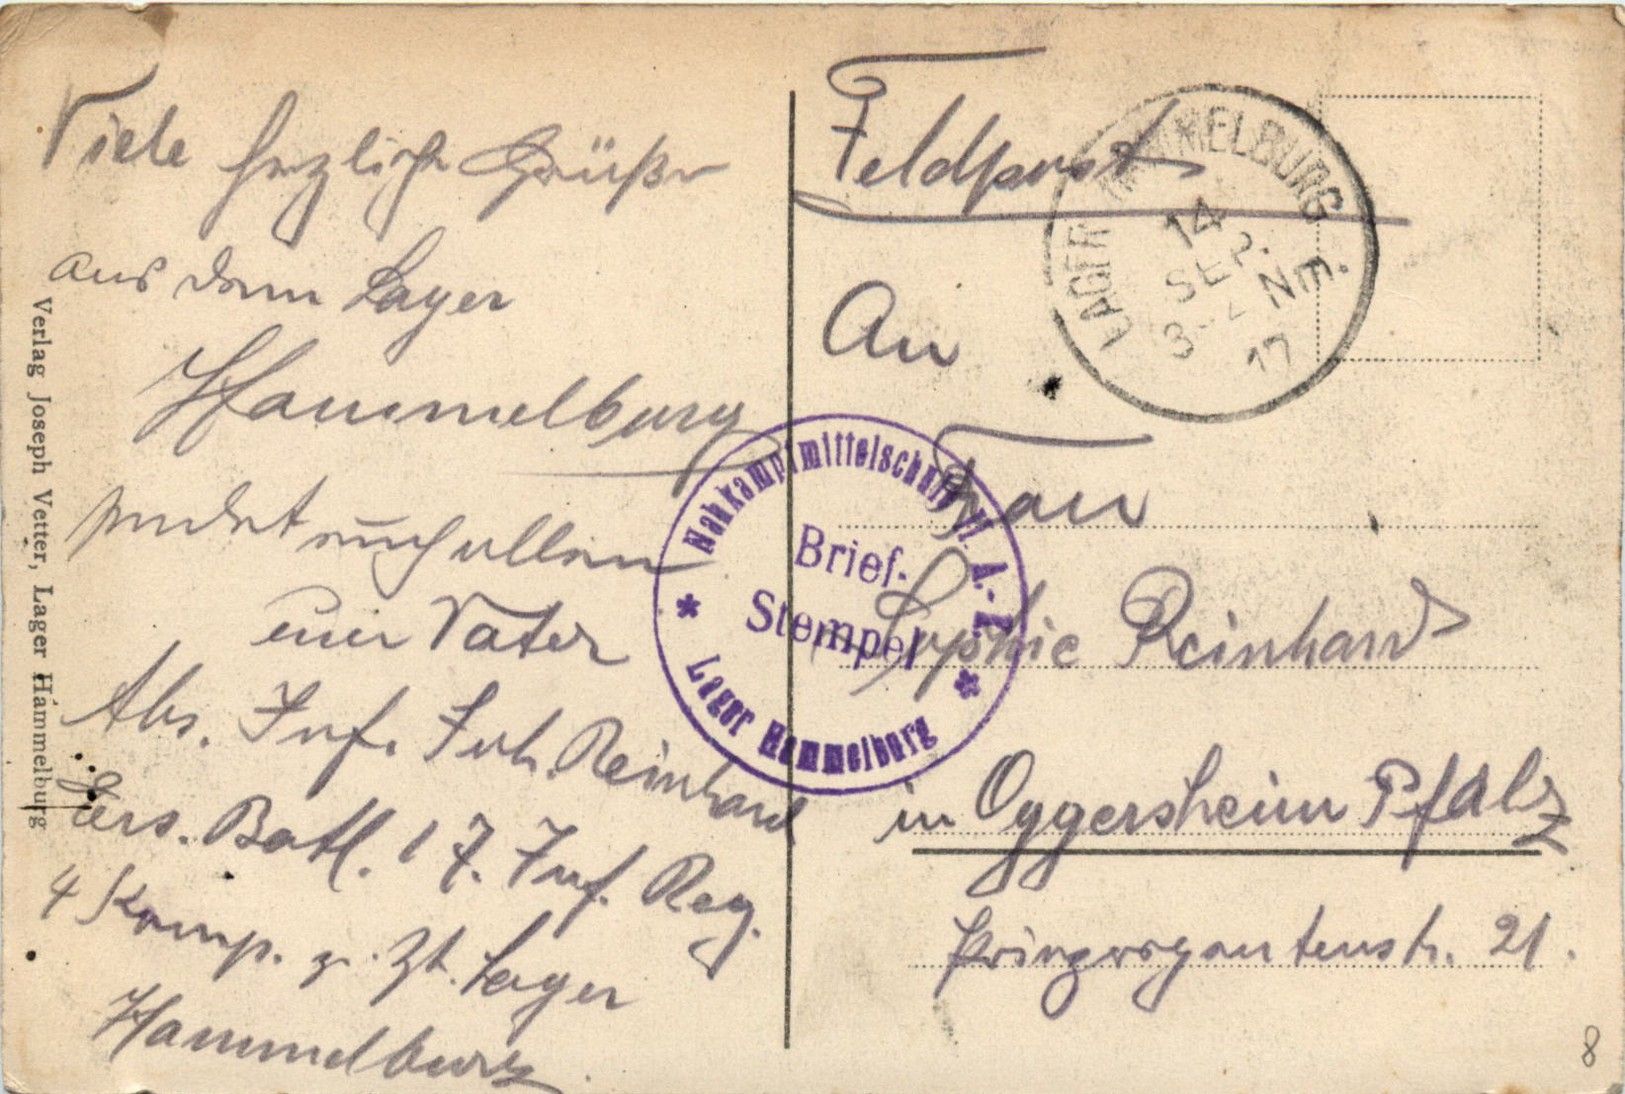 Viele herzliche Grüße
aus dem Lager
Hammelburg
sendet euch allen
euer Vater
Abs. Inf. Joh. Reinhard
Ers. Batl. 17. Inf. Reg.
4 Komp. z. Zt. Lager
Hammelburg.
Verlag Joseph Vetter, Lager Hammelburg
Feldpost
LAGER HAMMELBURG
14
SEP.
NM.
17
An
Frau
Sophie Reinhard
in Oggersheim Pfalz
Prinzregentenstr. 21.
Nahkampfmittelschule II. A.-K.
Brief-
Stempel
Lager Hammelburg
8